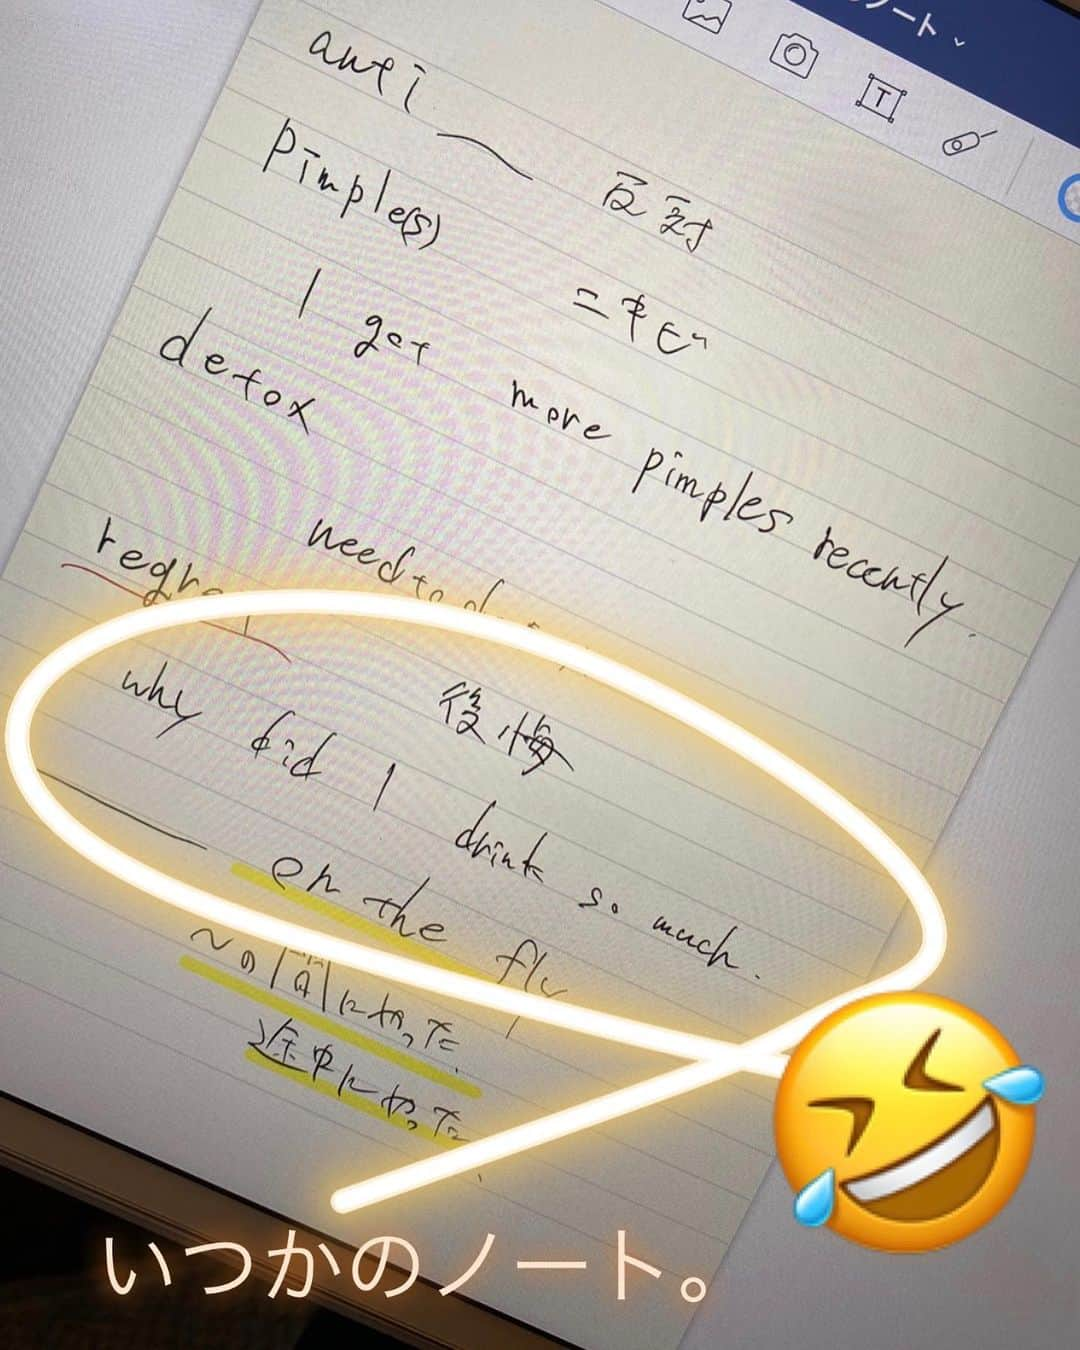 ノート
anti 〜 反対
pimple(s) ニキビ
I get more pimples recently.
detox
need to
regre
後悔
why did I drink so much.
on the fly
〜の間にやった
途中にやった
いつかのノート。